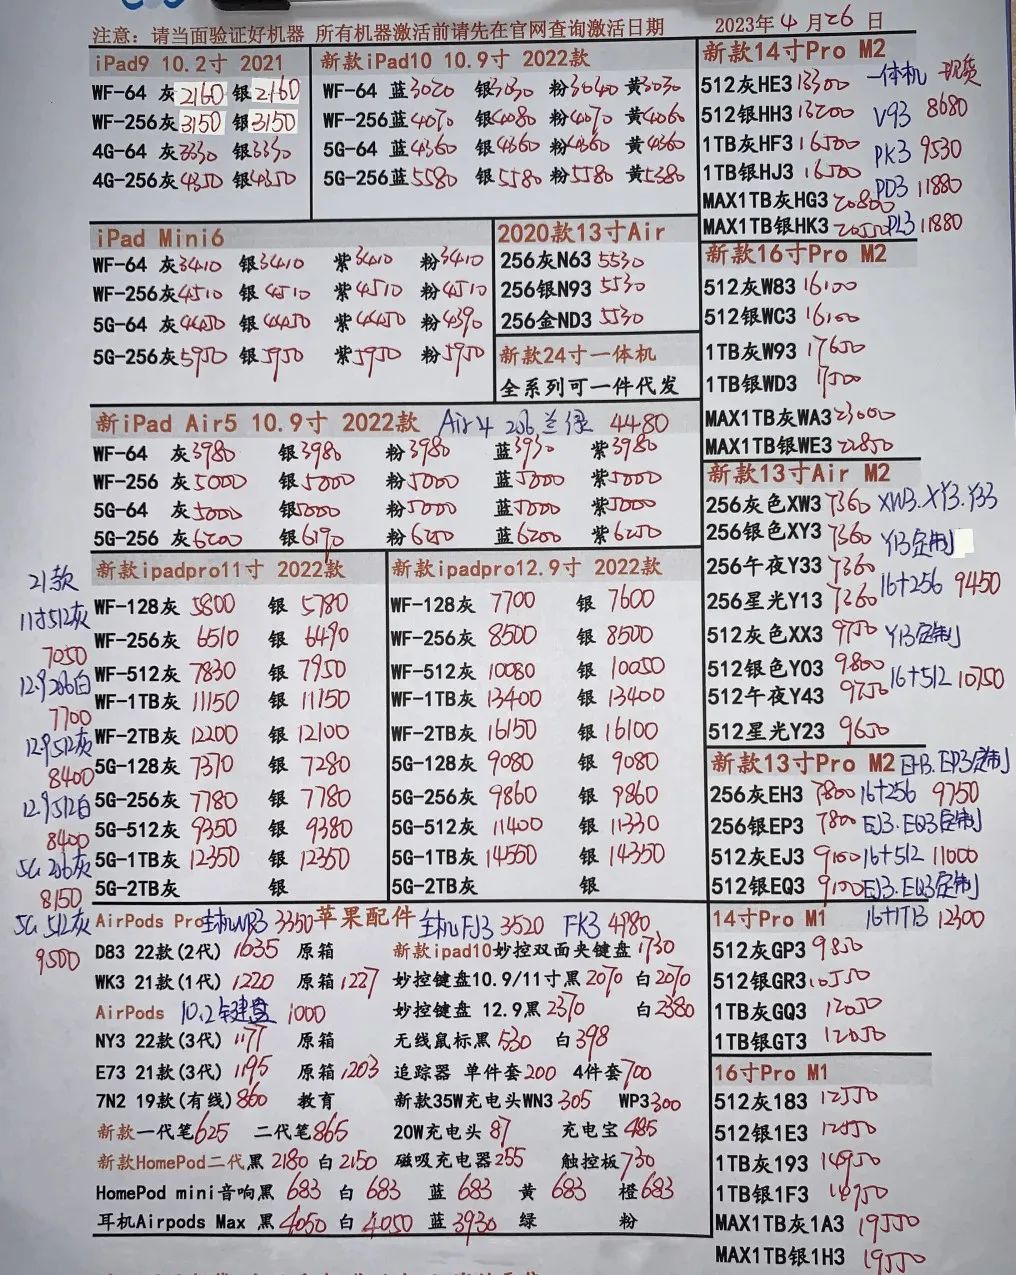 注意：请当面验证好机器 所有机器激活前请先在官网查询激活日期
2023年4月26日
iPad9 10.2寸 2021
WF-64 灰2160 银2160
WF-256灰3150 银3150
4G-64 灰3330 银3330
4G-256灰4350 银4350
新款iPad10 10.9寸 2022款
WF-64 蓝3020 银3030 粉3040 黄3030
WF-256蓝4070 银4080 粉4070 黄4060
5G-64 蓝4360 银4360 粉4360 黄4360
5G-256蓝5580 银5580 粉5580 黄5380
iPad Mini6
WF-64 灰3410 银3410 紫3410 粉3410
WF-256灰4510 银4510 紫4510 粉4510
5G-64 灰4450 银4450 紫4450 粉4390
5G-256灰5950 银5950 紫5950 粉5950
2020款13寸Air
256灰N63 5530
256银N93 5530
256金ND3 5530
新款24寸一体机
全系列可一件代发
新iPad Air5 10.9寸 2022款 Air4 256 兰 绿 4480
WF-64 灰3980 银3980 粉3980 蓝3930 紫3980
WF-256 灰5000 银5000 粉5000 蓝5000 紫5000
5G-64 灰5000 银5000 粉5000 蓝5000 紫5000
5G-256 灰6200 银6190 粉6250 蓝6200 紫6250
新款ipadpro11寸 2022款
WF-128灰 5800 银 5780
WF-256灰 6510 银 6490
WF-512灰 7830 银 7950
WF-1TB灰 11150 银 11150
WF-2TB灰 12200 银 12100
5G-128灰 7370 银 7280
5G-256灰 7780 银 7780
5G-512灰 9350 银 9380
5G-1TB灰 12350 银 12350
5G-2TB灰 银
新款ipadpro12.9寸 2022款
WF-128灰 7700 银 7600
WF-256灰 8500 银 8500
WF-512灰 10080 银 10050
WF-1TB灰 13400 银 13400
WF-2TB灰 16150 银 16100
5G-128灰 9080 银 9080
5G-256灰 9860 银 9860
5G-512灰 11400 银 11330
5G-1TB灰 14550 银 14350
5G-2TB灰 银
21款
11寸512灰
7050
12.9 256白
7700
12.9 512灰
8400
12.9 512白
8400
5G 256灰
8150
5G 512灰
9500
AirPods Pro 主机NR3 3350 苹果配件 主机FJ3 3520 FK3 4780
D83 22款(2代) 1635 原箱
WK3 21款(1代) 1220 原箱1227
AirPods 10.2键盘 1000
NY3 22款(3代) 1177 原箱
E73 21款(3代) 1195 原箱1203
7N2 19款(有线)860 教育
新款一代笔625 二代笔865
新款HomePod二代黑 2180 白2150
HomePod mini音响黑 683 白 683 蓝 683 黄 683 橙683
耳机Airpods Max 黑 4050 白 4050 蓝 3930 绿 粉
新款ipad10妙控双面夹键盘 1730
妙控键盘10.9/11寸黑2070 白2070
妙控键盘 12.9黑2370 白2380
无线鼠标黑530 白398
追踪器 单件套200 4件套700
新款35W充电头WN3 305 WP3 300
20W充电头 87 充电宝 485
磁吸充电器255 触控板730
新款14寸Pro M2
512灰HE3 13300
512银HH3 13200
1TB灰HF3 16500
1TB银HJ3 16500
MAX1TB灰HG3 20800
MAX1TB银HK3 20550
一体机 现货
V93 8680
PK3 9530
PD3 11880
PL3 11880
新款16寸Pro M2
512灰W83 16100
512银WC3 16100
1TB灰W93 17650
1TB银WD3
MAX1TB灰WA3 23000
MAX1TB银WE3 22850
新款13寸Air M2
256灰色XW3 7360 XW3.XY3.Y33
256银色XY3 7360 Y13定制
256午夜Y33 7360 16+256 9450
256星光Y13 7360
512灰色XX3 9750 Y13定制
512银色Y03 9800 16+512 10750
512午夜Y43 9750
512星光Y23 9650
新款13寸Pro M2 EH3.EP3定制
256灰EH3 7800 16+256 9750
256银EP3 7800 EJ3.EQ3定制
512灰EJ3 9100 16+512 11000
512银EQ3 9100 EJ3.EQ3定制
14寸Pro M1 16+1TB 12300
512灰GP3 9850
512银GR3 10550
1TB灰GQ3 12050
1TB银GT3 12050
16寸Pro M1
512灰183 12550
512银1E3 12550
1TB灰193 14950
1TB银1F3 14950
MAX1TB灰1A3 19550
MAX1TB银1H3 19550